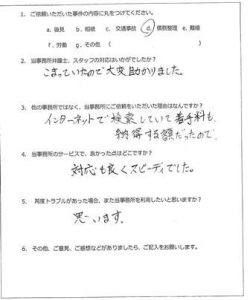 1. ご依頼いただいた事件の内容に丸をつけてください。
a. 後見 b. 相続 c. 交通事故 d. 債務整理 e. 離婚
f. 労働 g. その他 ( )
2. 当事務所弁護士、スタッフの対応はいかがでしたか?
こまっていたので大変助かりました。
3. 他の事務所ではなく、当事務所にご依頼をいただいた理由はなんですか?
インターネットで検索していて着手料も
納得する額だったので
4. 当事務所のサービスで、良かった点はどこですか?
対応も良くスピーディでした。
5. 再度トラブルがあった場合、また当事務所を利用したいと思いますか?
思います。
6. その他、ご意見、ご感想などがありましたら、ご記入をお願いします。